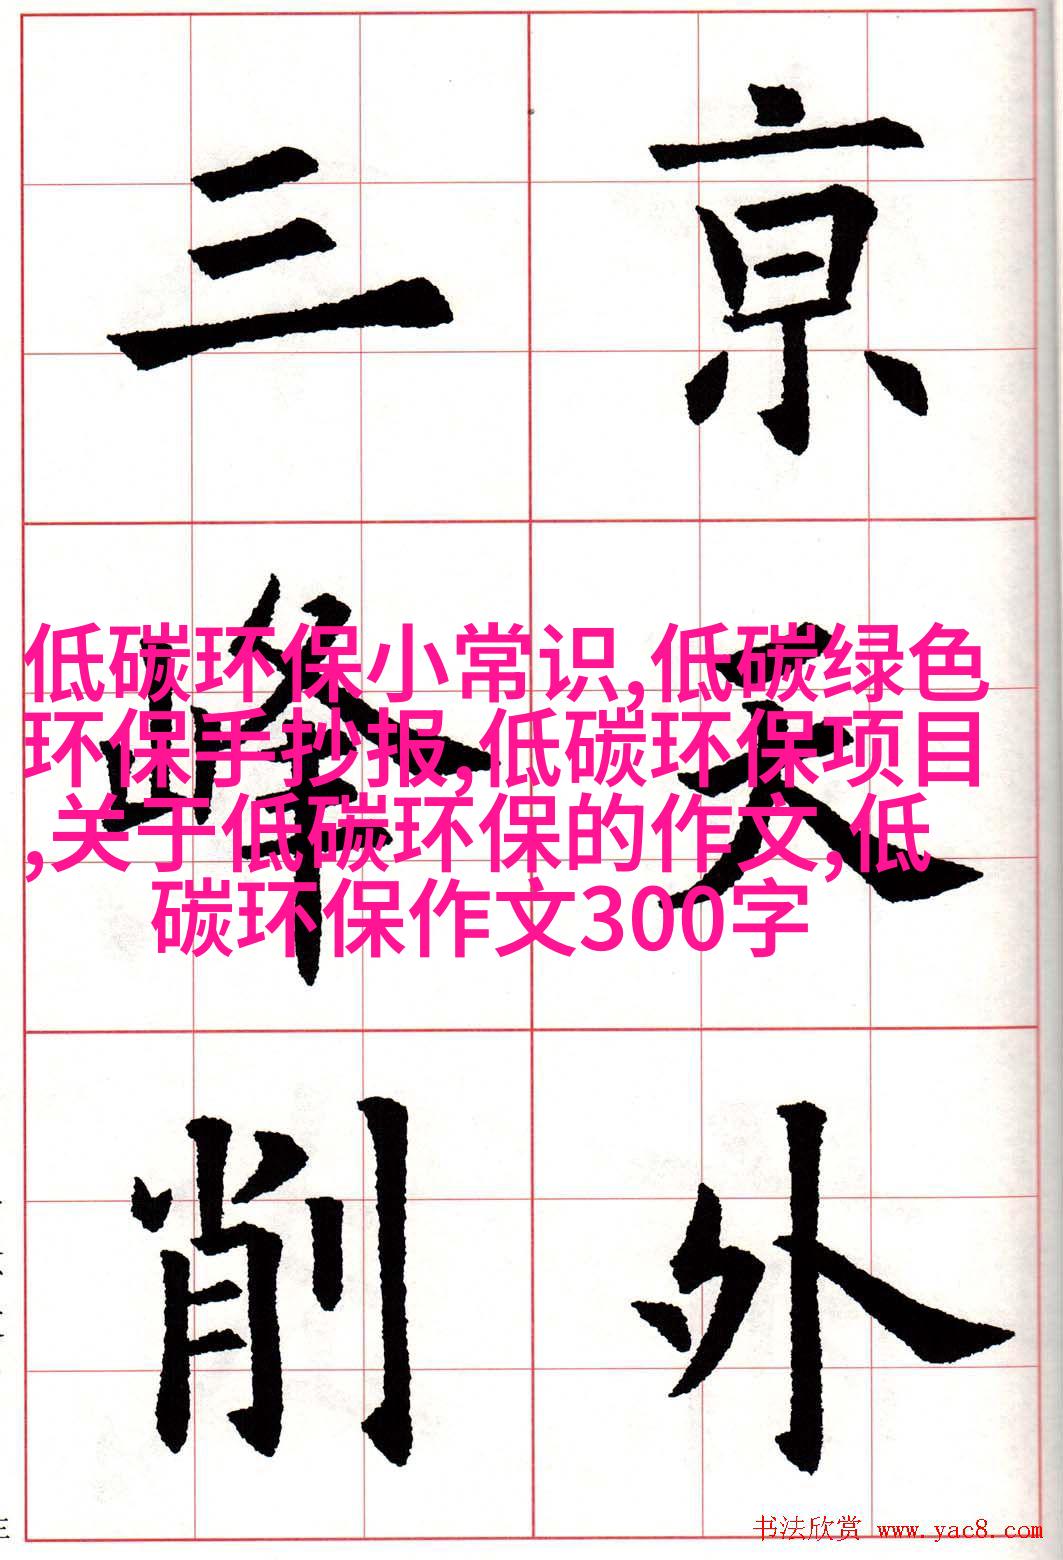 亰天外
三峰削
低碳环保小常识,低碳绿色
环保手抄报,低碳环保项目
,关于低碳环保的作文,低
碳环保作文300字
书法欣赏 www.yac8.com